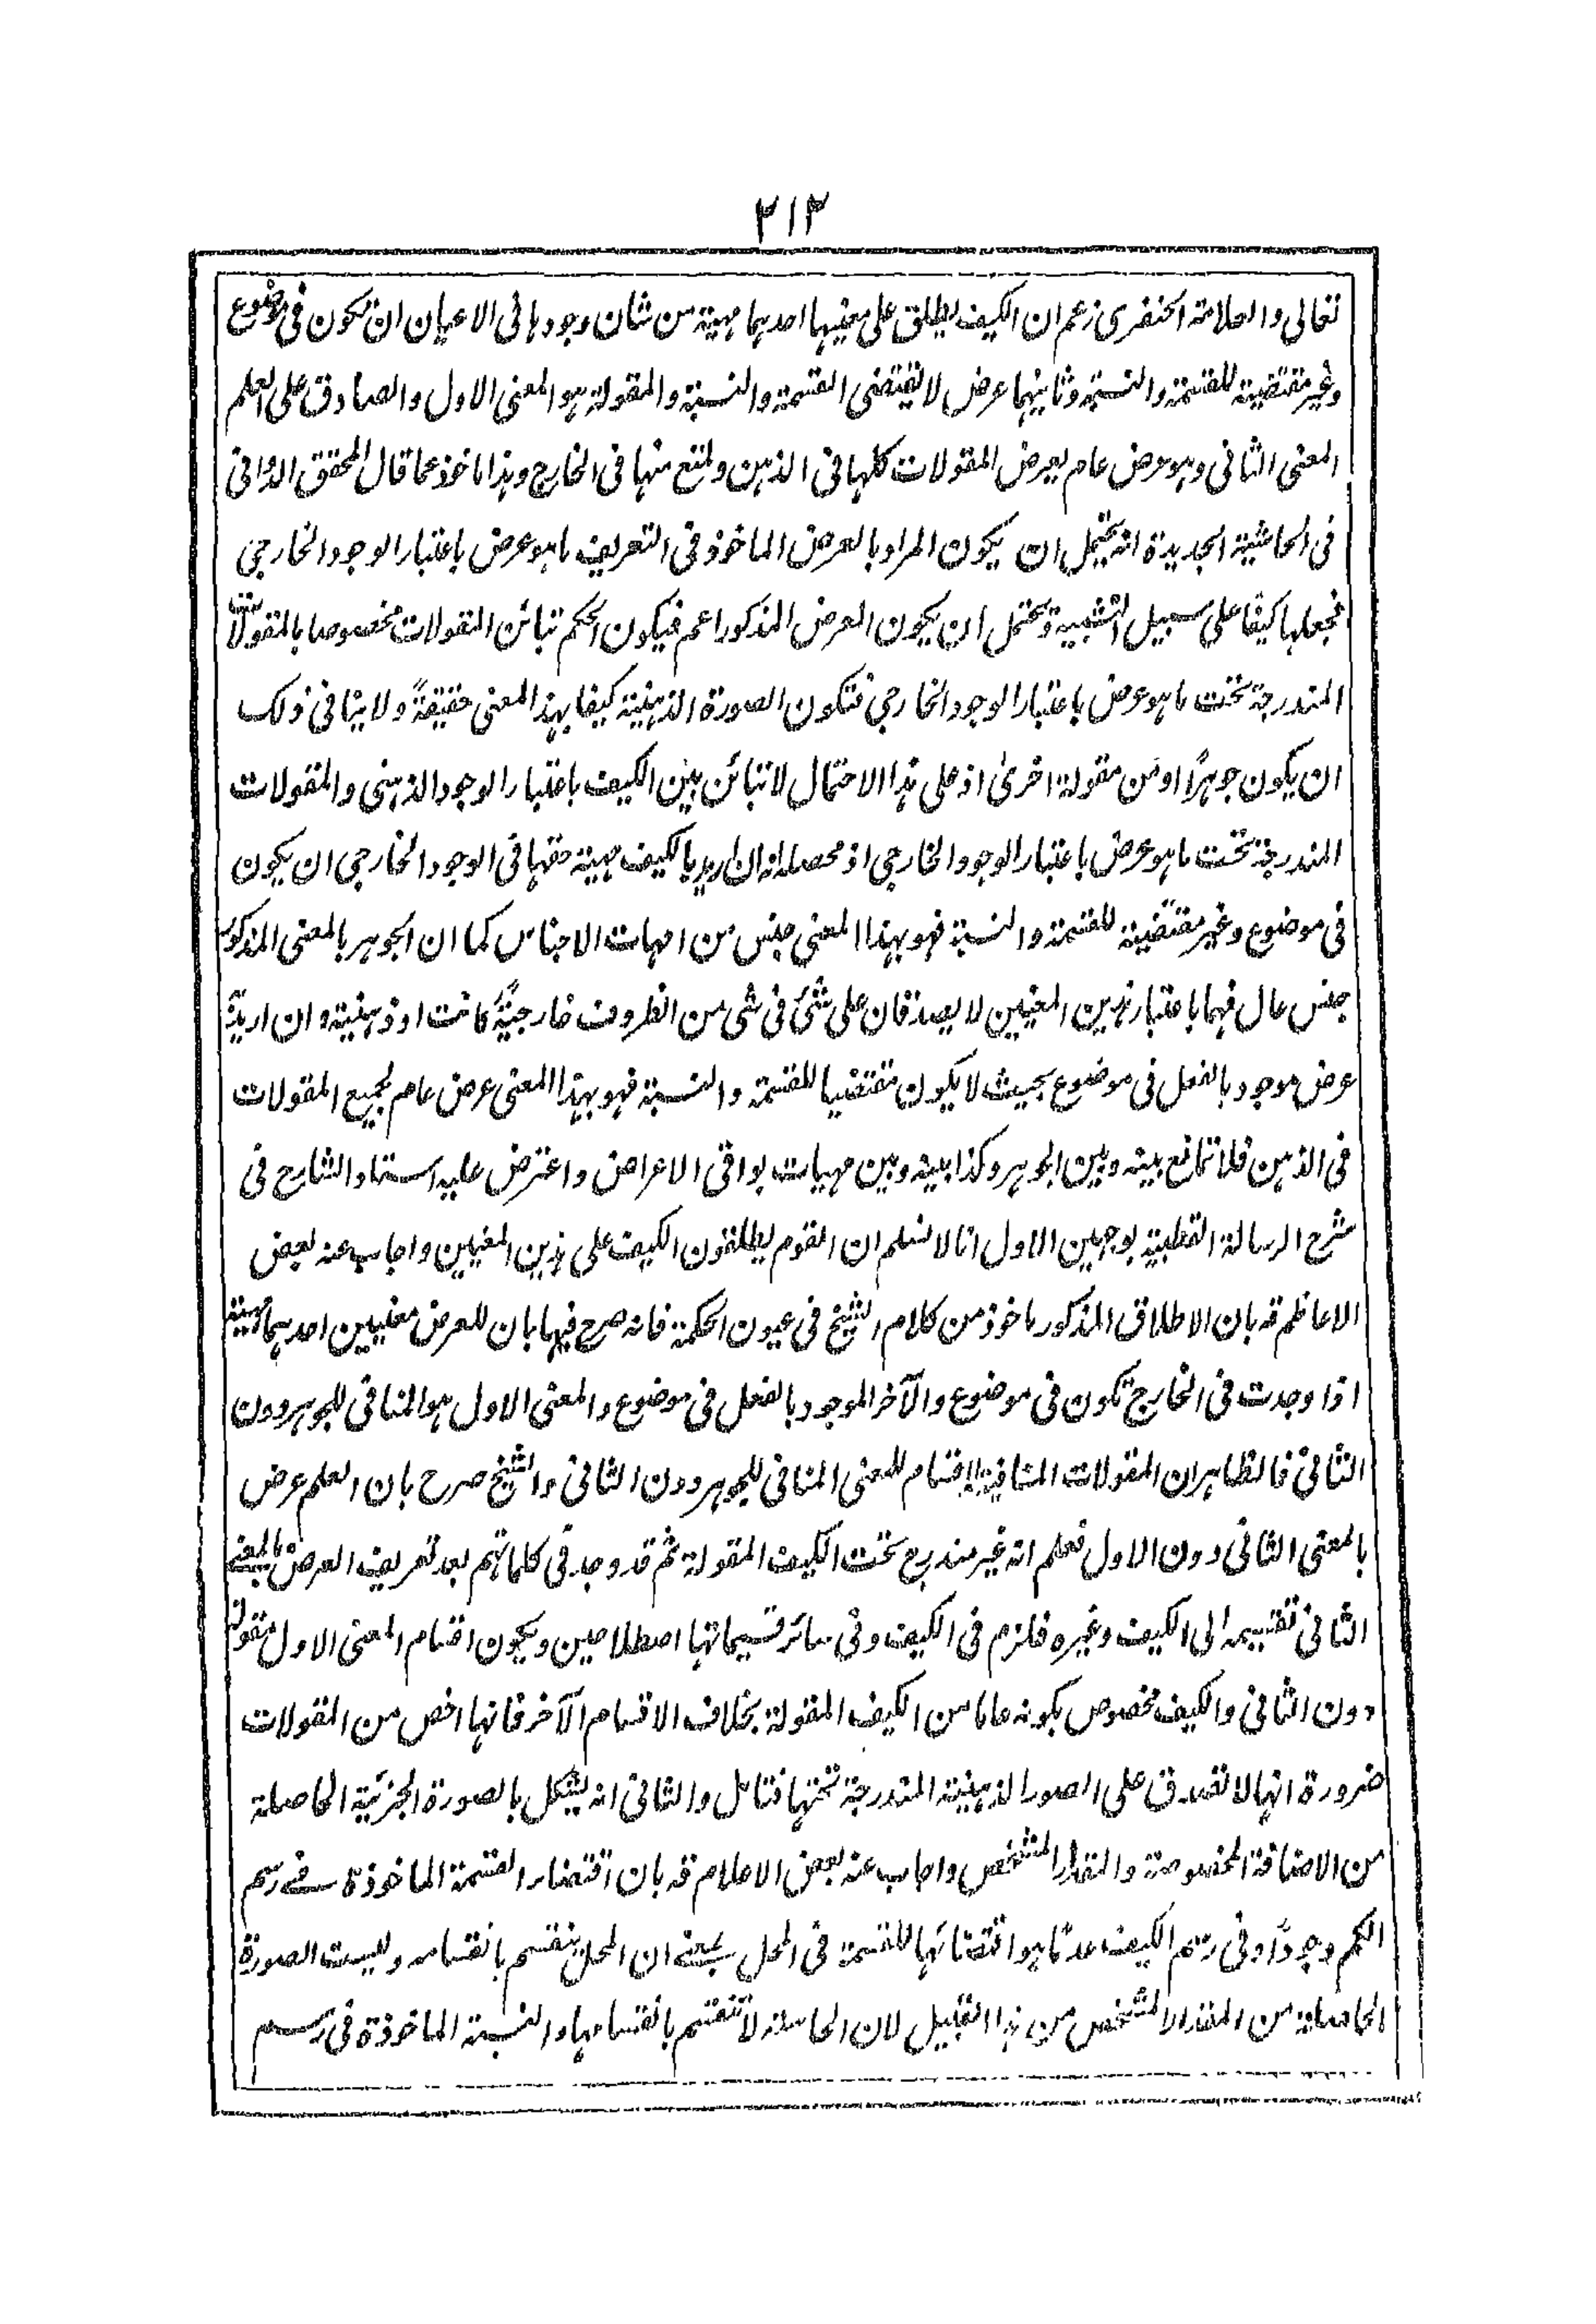 ٢١٣
تعالى والعلامة الخفرى زعم ان الكيف يطلق على معنيين احدهما مهية من شان وجودها فى الاعيان ان تكون فى موضوع
وغير مقتضية للقسمة والنسبة وثانيهما عرض لا يقتضى القسمة والنسبة والمقولة هو المعنى الاول والصادق على العلم
المعنى الثانى وهو عرض عام يعرض المقولات كلها فى الذهن ولمتع منها فى الخارج وهذا ماخوذ مما قال المحقق الدوانى
فى الحاشية الجديدة انه يحتمل ان يكون المراد بالعرض الماخوذ فى التعريف ما هو عرض باعتبار الوجود الخارجي
فجعلها كيفا على سبيل التشبيه ويحتمل ان يكون العرض المذكور اعم فيكون الحكم تبائن المقولات مخصوصا بالمقولات
المندرجة تحت ما هو عرض باعتبار الوجود الخارجي فتكون الصورة الذهنية كيفا بهذا المعنى حقيقةً ولا ينافى ذلك
ان يكون جوهرًا او من مقولة اخرىٰ اذ على هذا الاحتمال لا تبائن بين الكيف باعتبار الوجود الذهنى والمقولات
المندرجة تحت ما هو عرض باعتبار الوجود الخارجي اذ محصله انه ان اريد بالكيف مهية حقها فى الوجود الخارجي ان يكون
فى موضوع وغير مقتضية للقسمة والنسبة فهو بهذا المعنى جنس من امهات الاجناس كما ان الجوهر بالمعنى المذكور
جنس عال فهما باعتبار هذين المعنيين لا يصدقان على شئ فى شى من الظروف خارجيةً كانت او ذهنية وان اريد به
عرض موجود بالفعل فى موضوع بحيث لا يكون مقتضيا للقسمة والنسبة فهو بهذا المعنى عرض عام لجميع المقولات
فى الذهن فلا تمانع بينه وبين الجوهر وكذا بينه وبين مهيات بواقى الاعراض واعترض عليه استاد الشارح فى
شرح الرسالة القطبية بوجهين الاول انا لا نسلم ان القوم يطلقون الكيف على هذين المعنيين واجاب عنه بعض
الاعاظم قه بان الاطلاق المذكور ماخوذ من كلام الشيخ فى عيون الحكمة فانه صرح فيها بان للعرض معنيين احدهما مهية
اذا وجدت فى الخارج تكون فى موضوع والآخر الموجود بالفعل فى موضوع والمعنى الاول هو المنافى للجوهر دون
الثانى فالظاهر ان المقولات المتنافية اقسام للمعنى المنافى للجوهر دون الثانى والشيخ صرح بان العلم عرض
بالمعنى الثانى دون الاول فعلم انه غير مندرج تحت الكيف المقولة ثم قد وجد فى كلماتهم بعد تعريف العرض بالمعنى
الثانى تقسيمه الى الكيف وغيره فلزم فى الكيف وفى سائر قسيماتها اصطلاحين ويكون اقسام المعنى الاول مقولة
دون الثانى والكيف مخصوص بكونه عاما من الكيف المقولة بخلاف الاقسام الآخر فانها اخص من المقولات
ضرورة انها لا تصدق على الصور الذهنية المندرجة تحتها فتامل والثانى انه يشكل بالصورة الجزئية الحاصلة
من الاضافة المخصوصة والمقدار المتشخص واجاب عنه بعض الاعلام قه بان اقتضاء القسمة الماخوذة فى رسم
الكم وجودًا وفى رسم الكيف عدمًا هو اقتضائها للقسمة فى المحل بمعنى ان المحل ينقسم بانقسامه وليست الصورة
الحاصلة من المقدار المتشخص من هذا القبيل لان الحاسة لا تنقسم بانقسامها والنسبة الماخوذة فى رسم